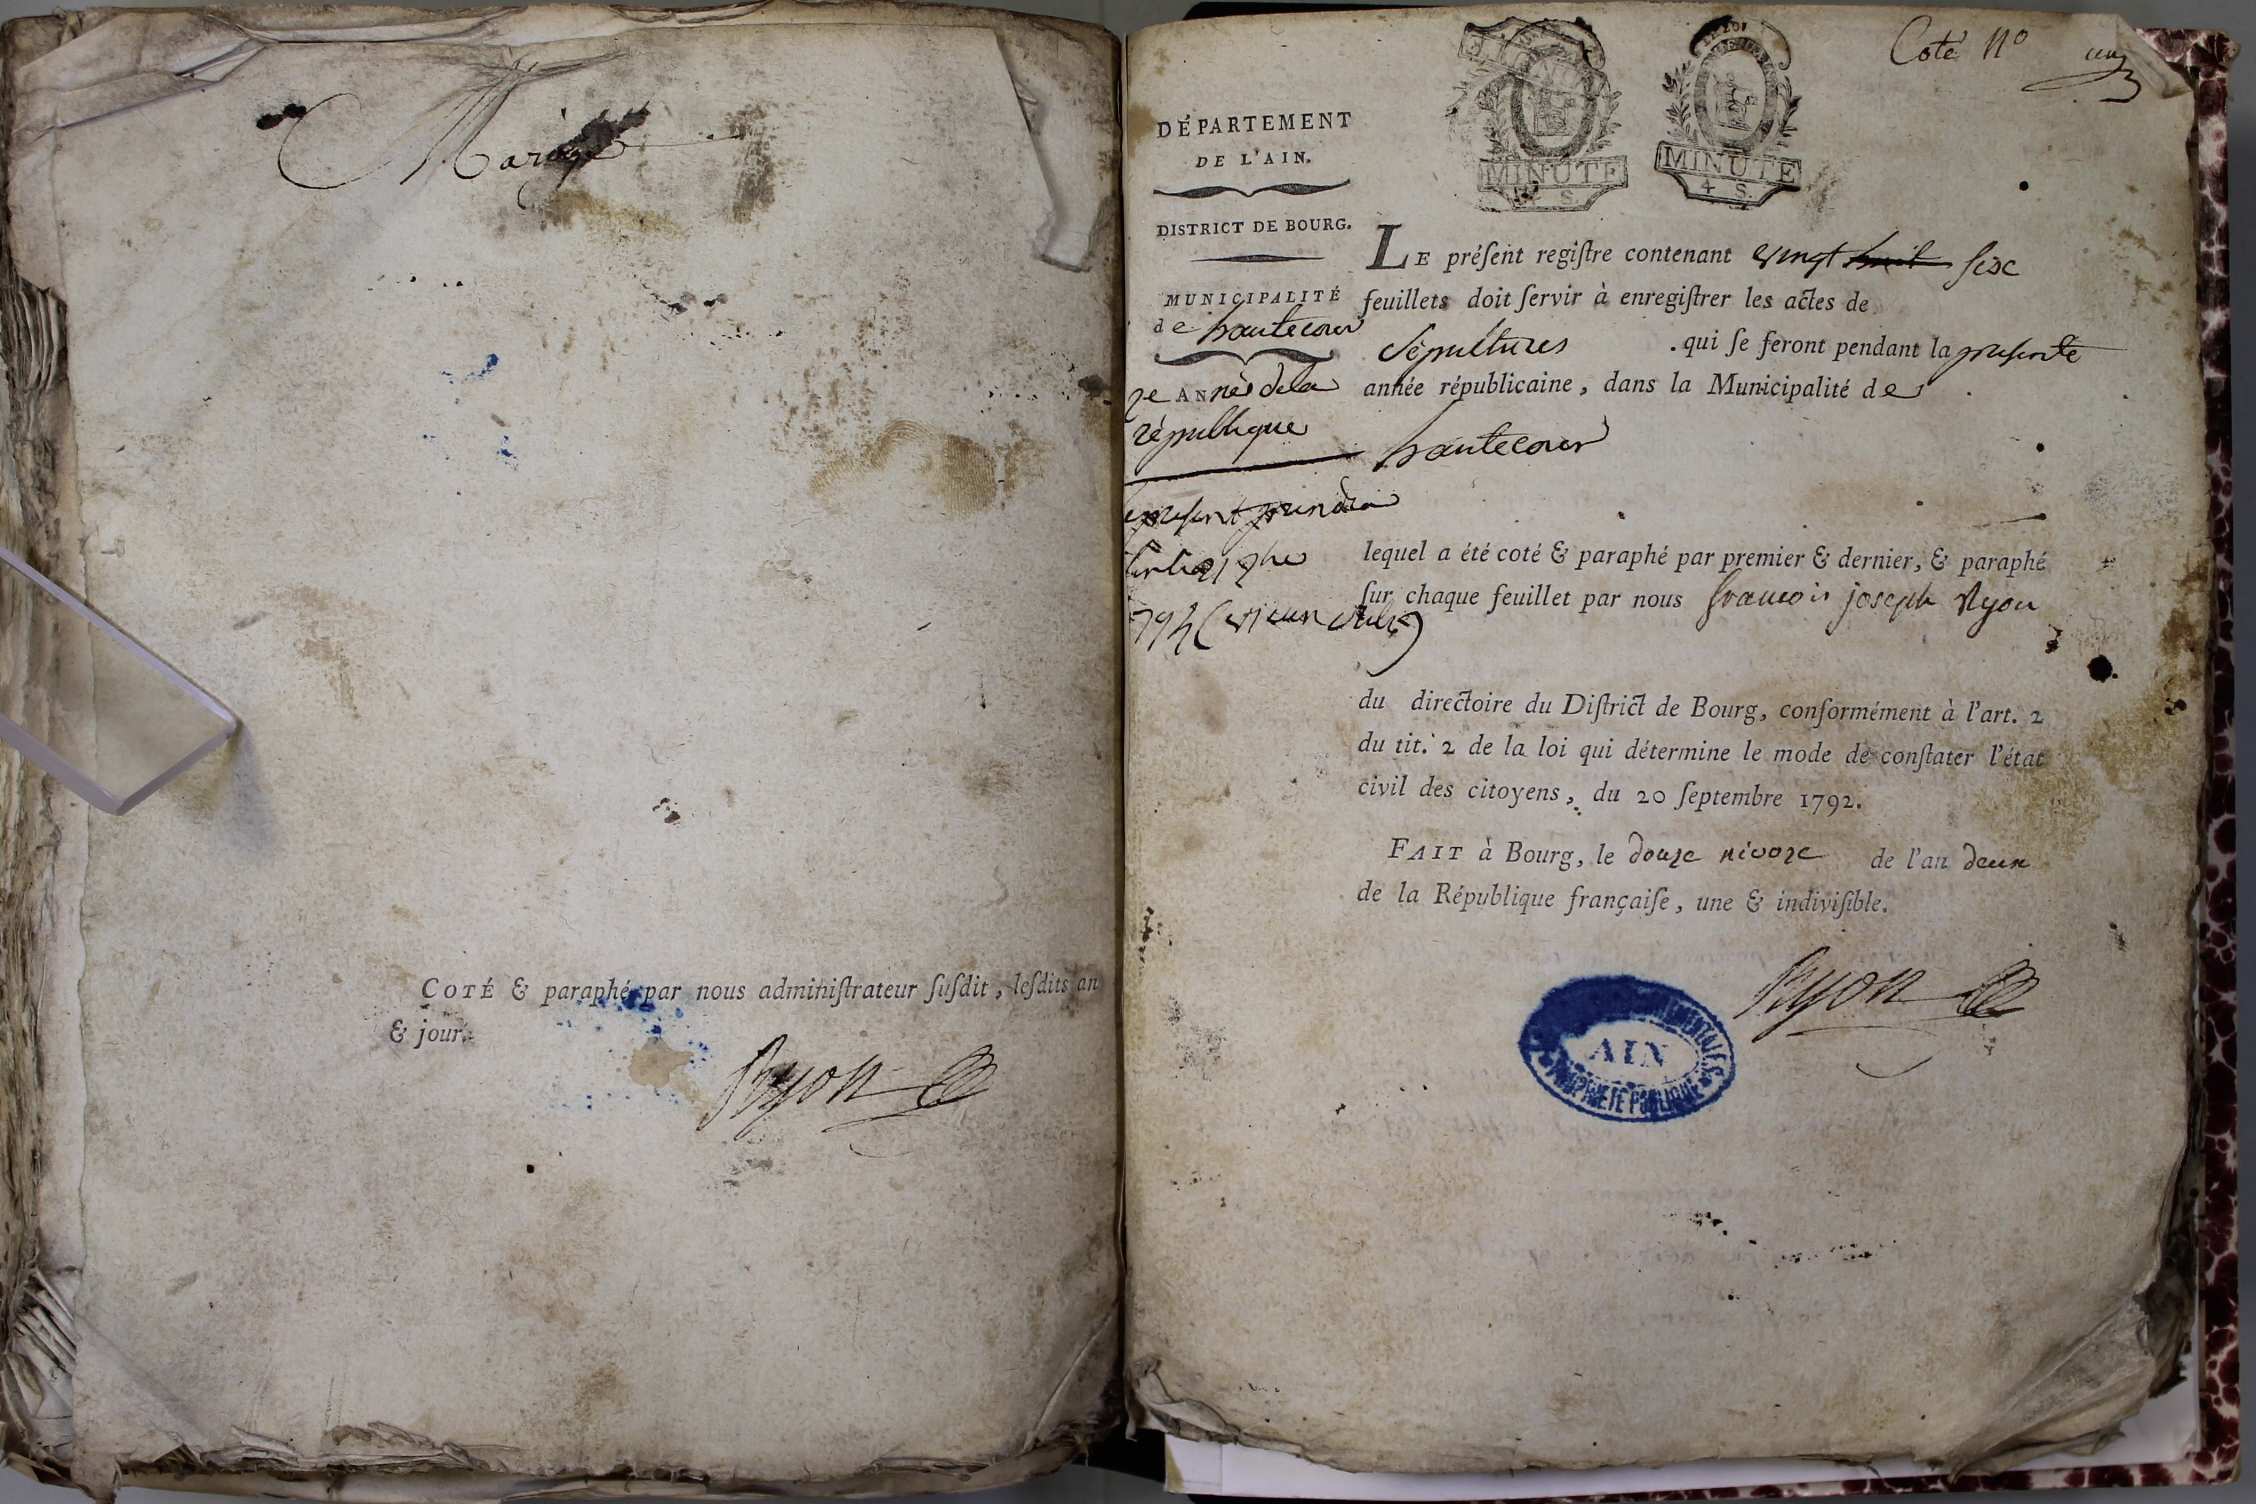 Mariage
COTÉ & paraphé par nous adminiſtrateur ſuſdit, leſdits an
& jour.
Ryon
Coté n° un
MINUTE
S
MINUTE
4 S
DÉPARTEMENT
DE L'AIN.
DISTRICT DE BOURG.
MUNICIPALITÉ
de hautecour
2e ANnée de la
république
present prendra
794 (vieux stile)
LE préſent regiſtre contenant vingt huit ſix
feuillets doit ſervir à enregiſtrer les actes de
Sépultures . qui ſe feront pendant la presente
année républicaine, dans la Municipalité de
hautecour
lequel a été coté & paraphé par premier & dernier, & paraphé
ſur chaque feuillet par nous francois joseph Ryon
du directoire du Diſtrict de Bourg, conformément à l'art. 2
du tit. 2 de la loi qui détermine le mode de conſtater l'état
civil des citoyens, du 20 ſeptembre 1792.
FAIT à Bourg, le douze nivoze de l'an deux
de la République françaiſe, une & indiviſible.
Ryon
AIN
PROPRIETE PUBLIQUE